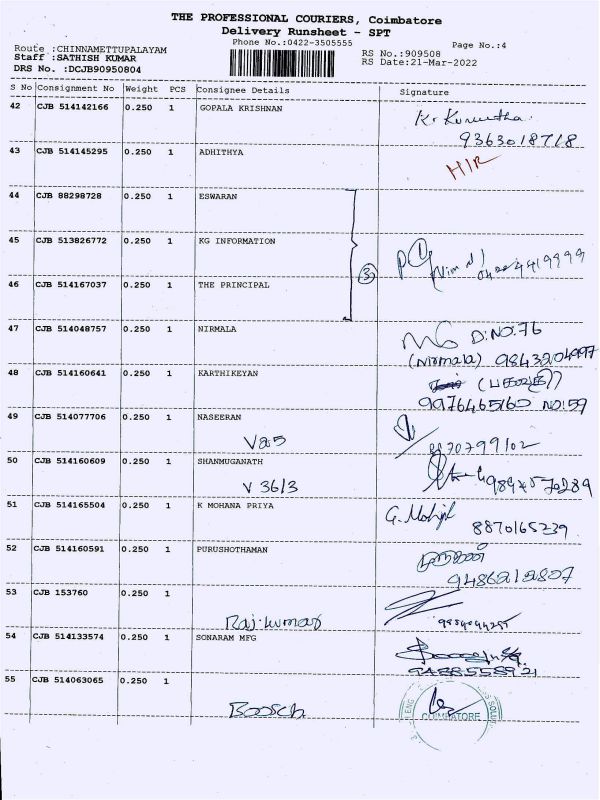 THE PROFESSIONAL COURIERS, Coimbatore
Delivery Runsheet - SPT
Phone No.:0422-3505555
Page No.:4
Route :CHINNAMETTUPALAYAM
RS No.:909508
Staff :SATHISH KUMAR
RS Date:21-Mar-2022
DRS No. :DCJB90950804
S No Consignment No Weight PCS Consignee Details Signature
42 CJB 514142166 0.250 1 GOPALA KRISHNAN
9363018718
43 CJB 514145295 0.250 1 ADHITHYA
44 CJB 88298728 0.250 1 ESWARAN
45 CJB 513826772 0.250 1 KG INFORMATION
3
46 CJB 514167037 0.250 1 THE PRINCIPAL
47 CJB 514048757 0.250 1 NIRMALA D.NO:76
(Nirmala) 9843204997
48 CJB 514160641 0.250 1 KARTHIKEYAN
9976465160 NO:59
49 CJB 514077706 0.250 1 NASEERAN
50 CJB 514160609 0.250 1 SHANMUGANATH
V 3613
51 CJB 514165504 0.250 1 K MOHANA PRIYA
8870165239
52 CJB 514160591 0.250 1 PURUSHOTHAMAN
9486212807
53 CJB 153760 0.250 1
Raj-kumar
54 CJB 514133574 0.250 1 SONARAM MFG
55 CJB 514063065 0.250 1
Boosch
COIMBATORE